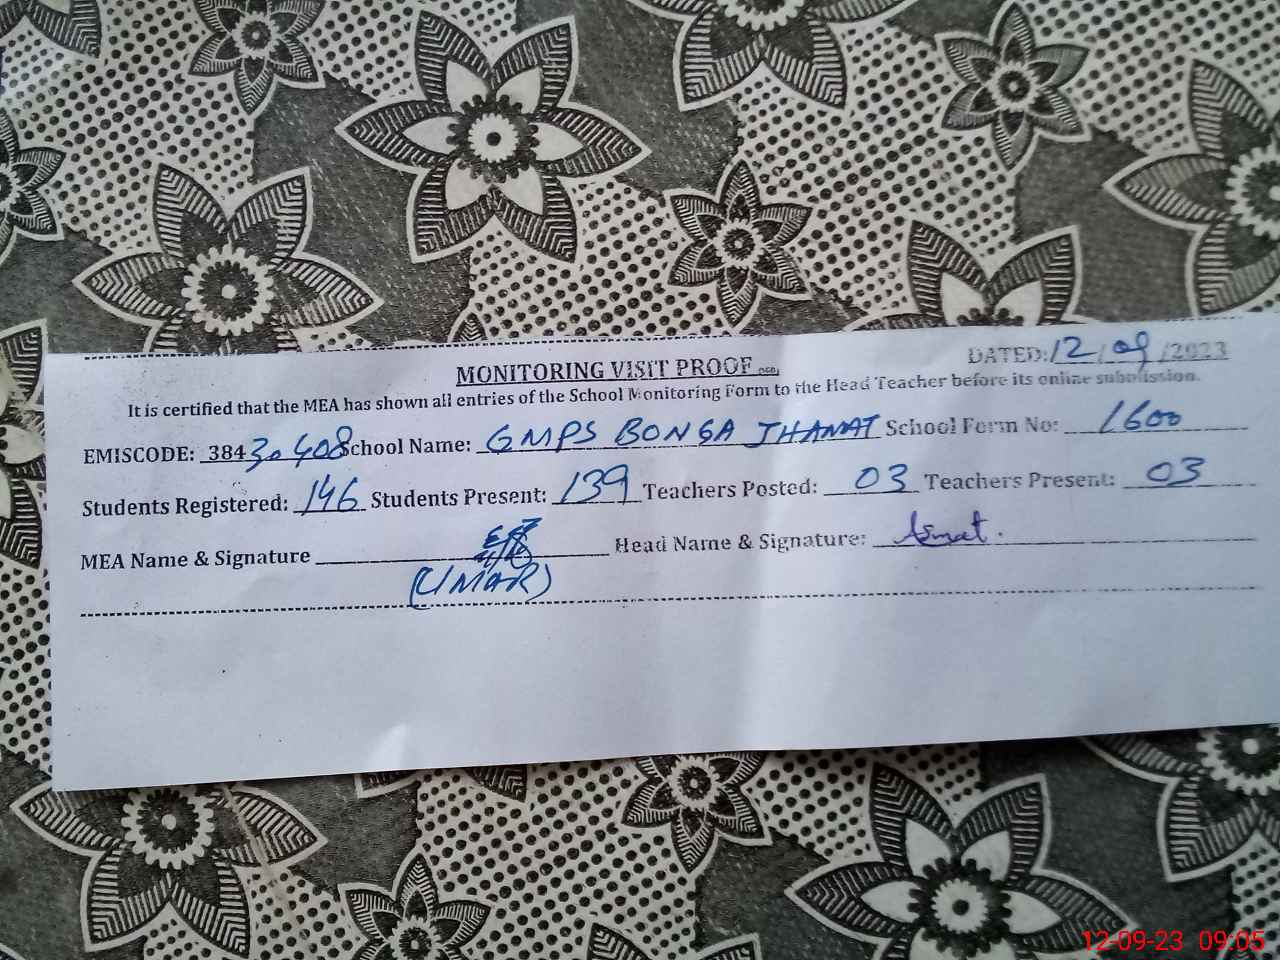 MONITORING VISIT PROOF
DATED: 12/09/2023
It is certified that the MEA has shown all entries of the School Monitoring Form to the Head Teacher before its online submission.
EMISCODE: 38430408 School Name: GMPS BONGA JHAMAT School Form No: 1600
Students Registered: 146 Students Present: 139 Teachers Posted: 03 Teachers Present: 03
MEA Name & Signature Head Name & Signature: Asmat.
(UMAR)
12-09-23 09:05